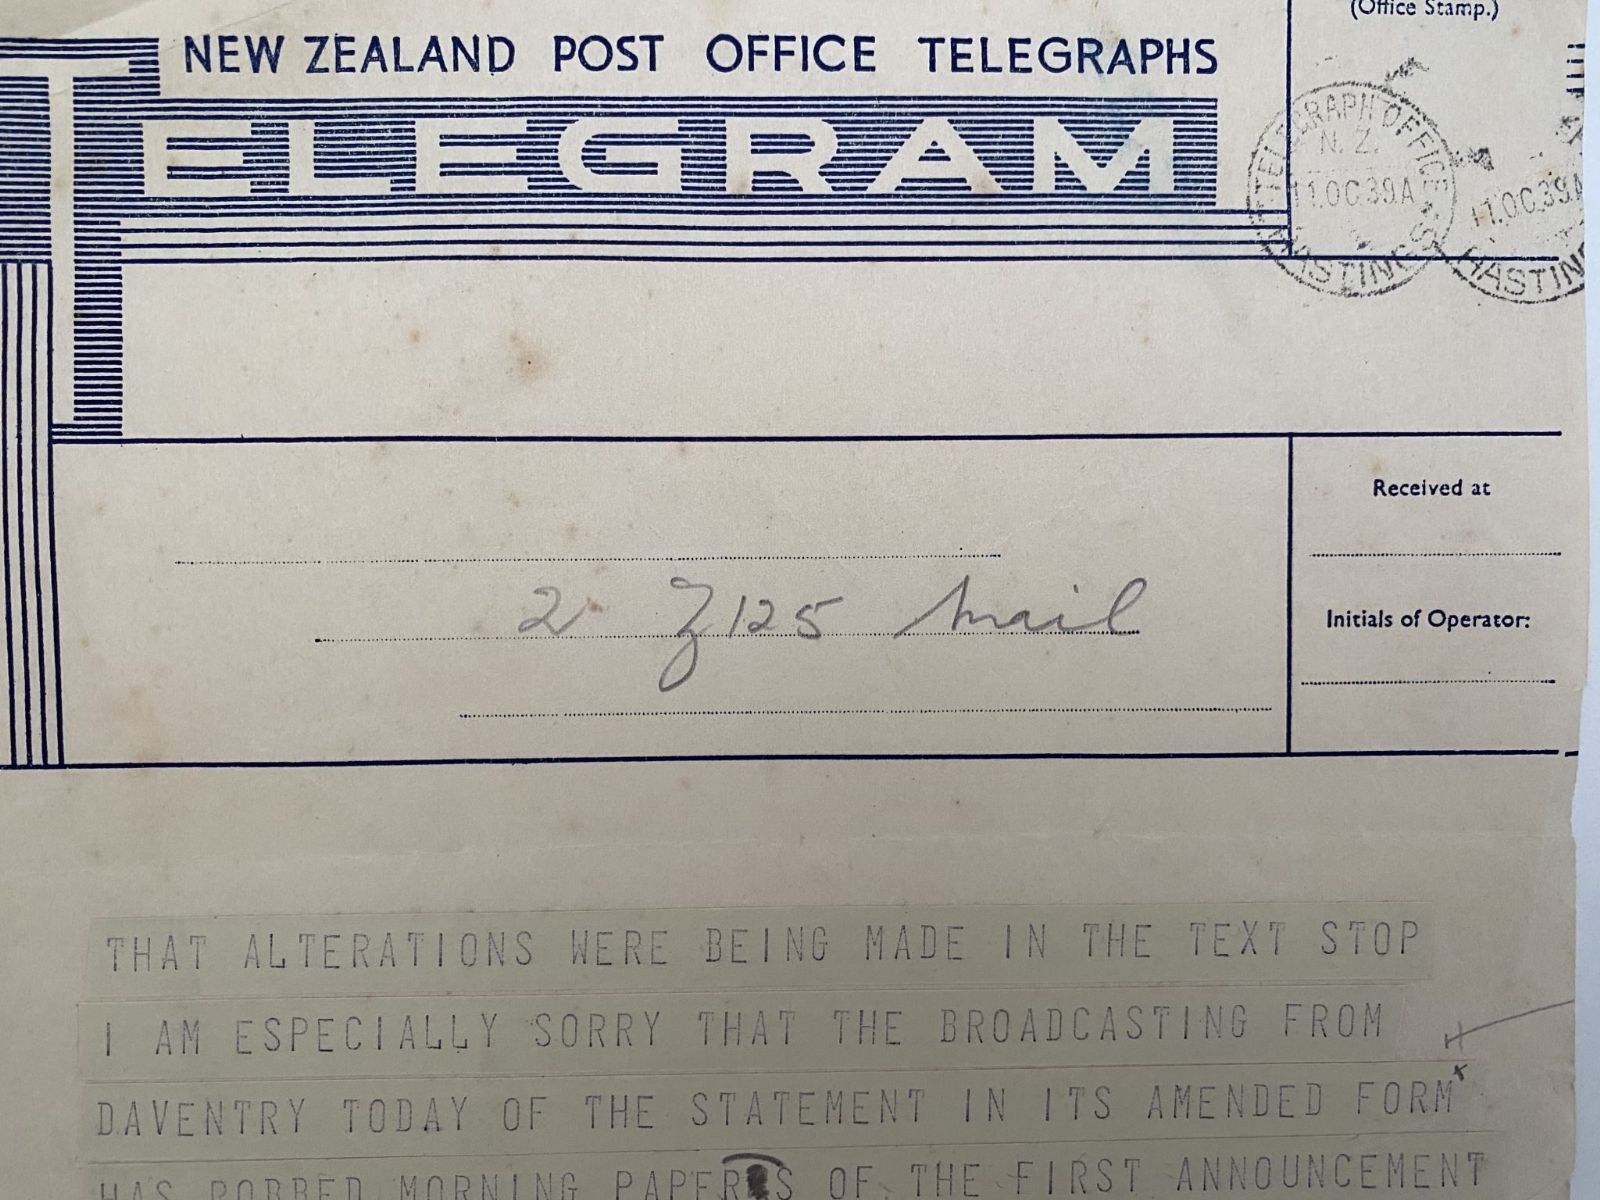 (Office Stamp.)
NEW ZEALAND POST OFFICE TELEGRAPHS
TELEGRAM
TELEGRAPH OFFICE
N. Z.
11.OC.39.A
HASTINGS
11.OC.39.A
HASTIN
Received at
2 Z125 Mail
Initials of Operator:
THAT ALTERATIONS WERE BEING MADE IN THE TEXT STOP
I AM ESPECIALLY SORRY THAT THE BROADCASTING FROM
DAVENTRY TODAY OF THE STATEMENT IN ITS AMENDED FORM
HAS ROBBED MORNING PAPERS OF THE FIRST ANNOUNCEMENT